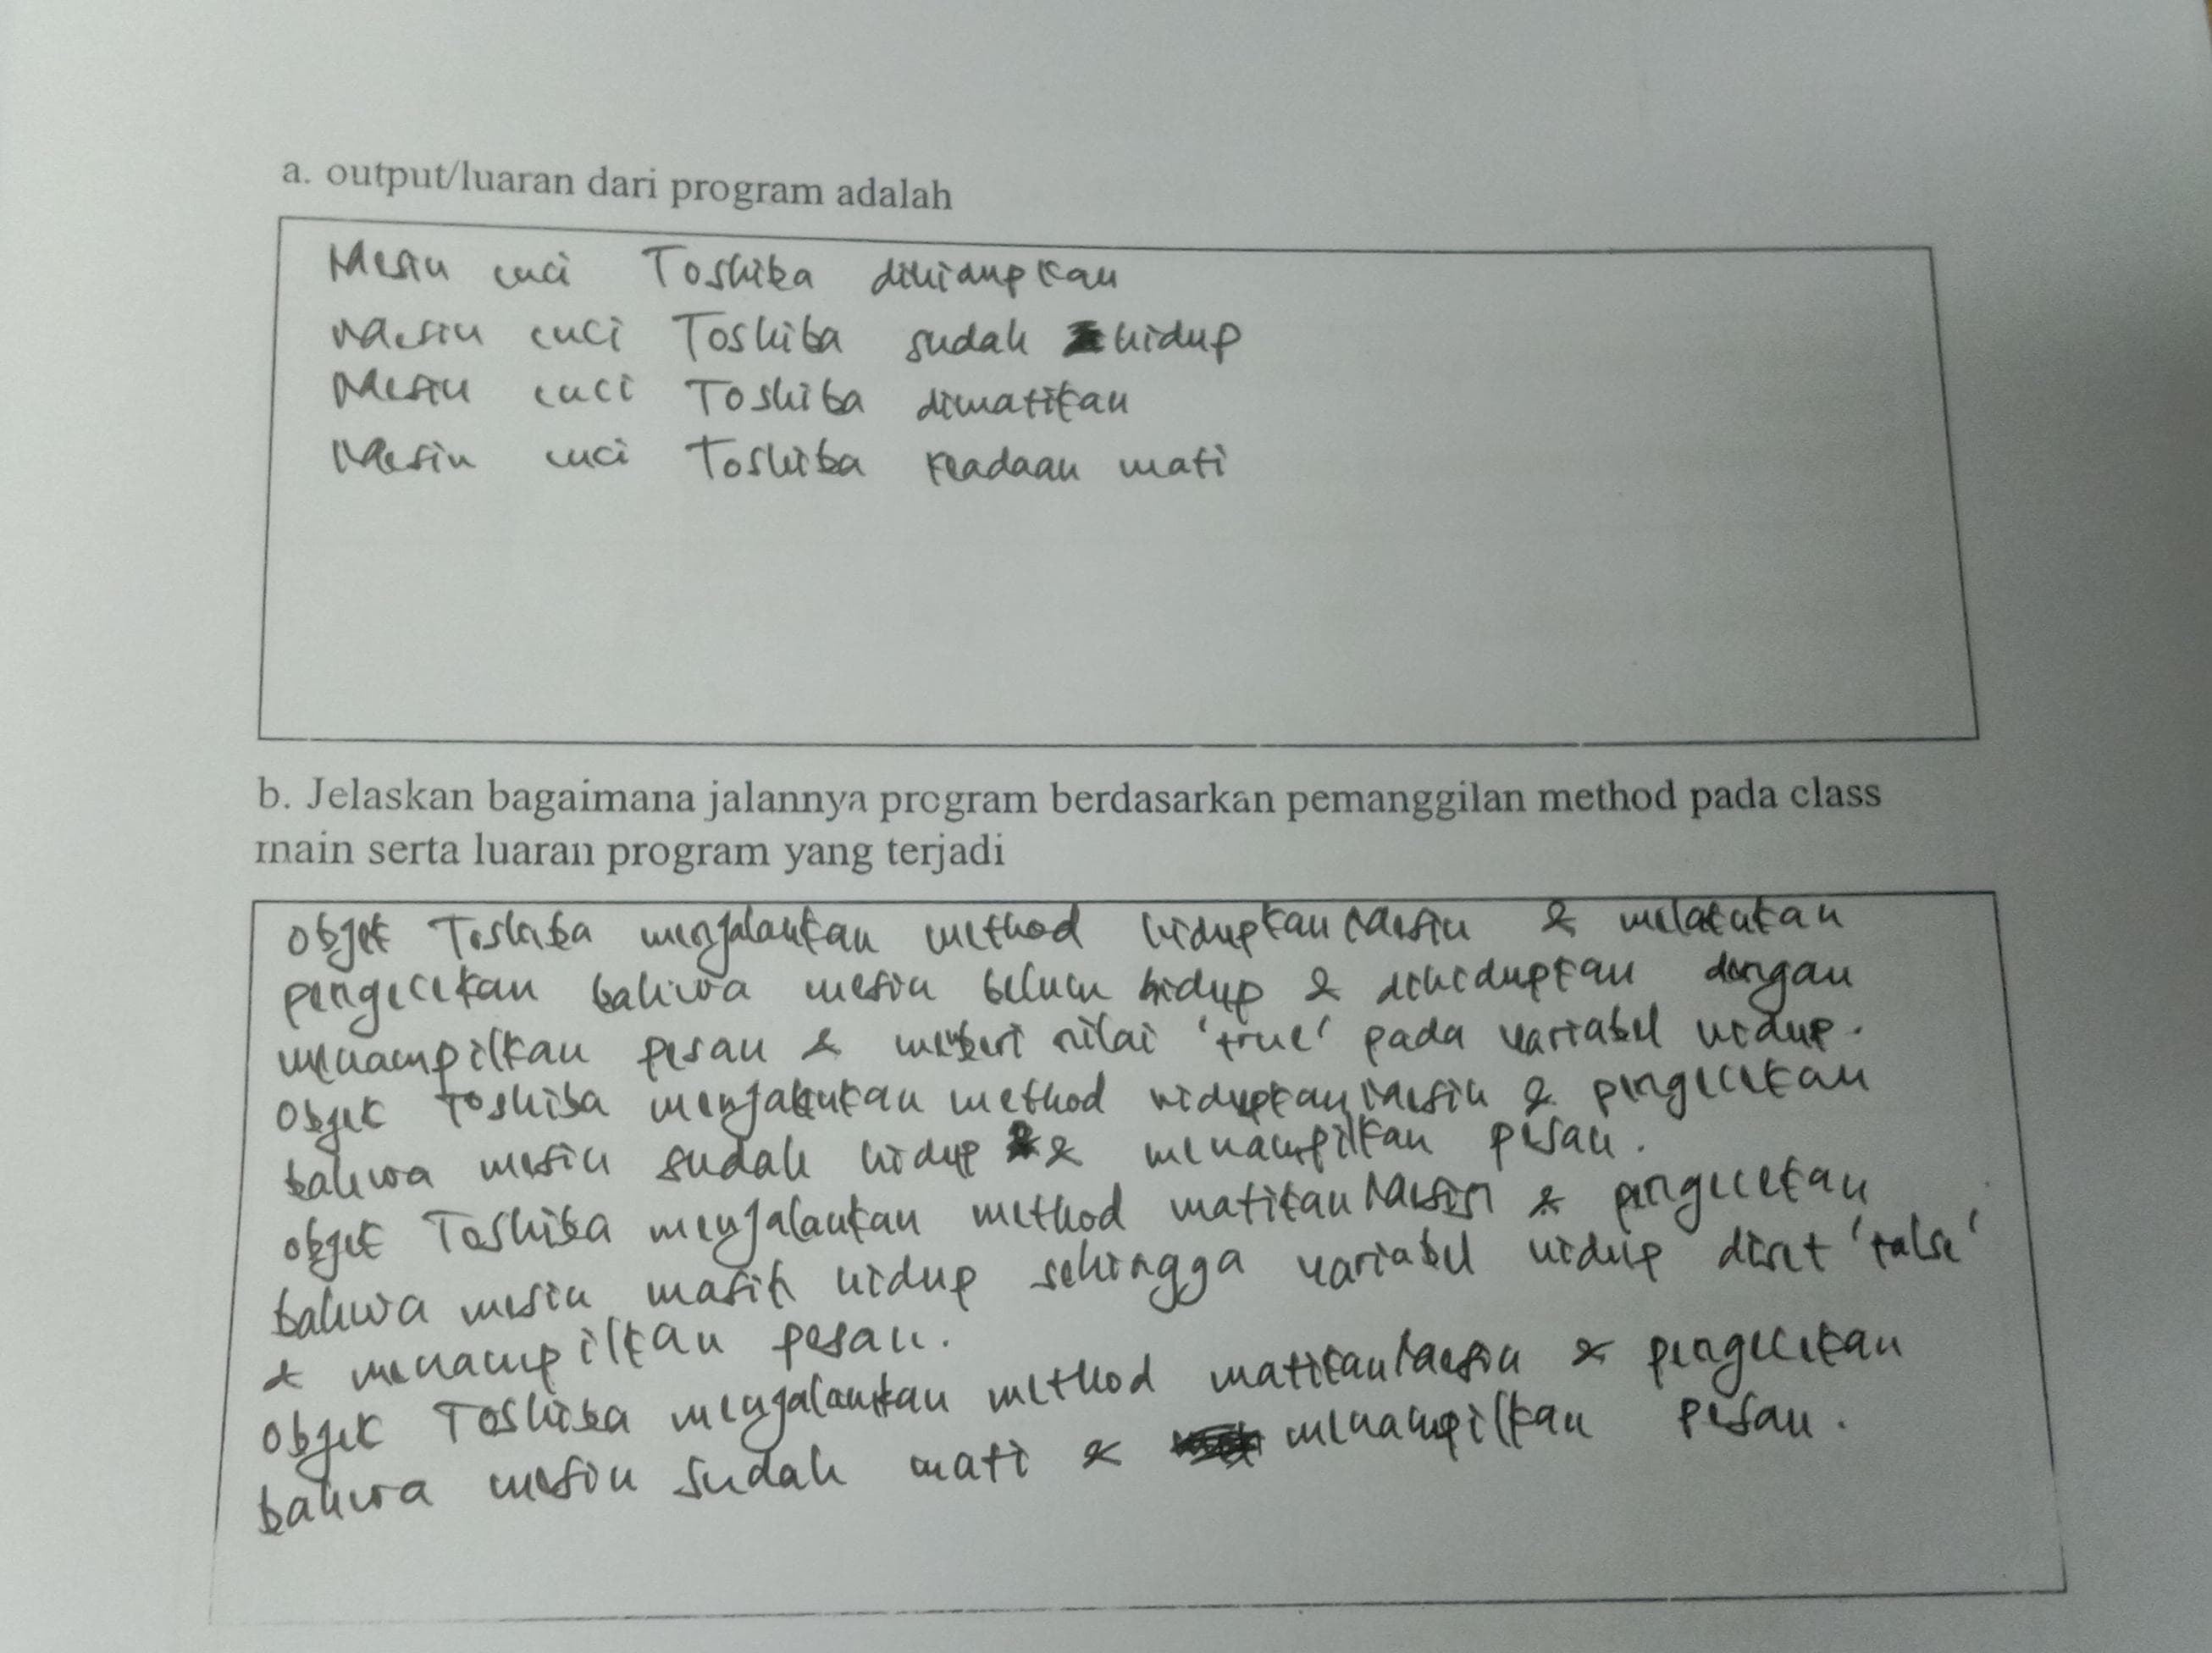 a. output/luaran dari program adalah
Mesin cuci Toshiba dihidupkan
Mesin cuci Toshiba sudah hidup
Mesin cuci Toshiba dimatikan
Mesin cuci Toshiba keadaan mati
b. Jelaskan bagaimana jalannya program berdasarkan pemanggilan method pada class
main serta luaran program yang terjadi
Objek Toshiba menjalankan method hidupkanMesin & melakukan
pengecekan bahwa mesin belum hidup & dihidupkan dengan
menampilkan pesan & memberi nilai 'true' pada variabel hidup.
Objek Toshiba menjalankan method hidupkanMesin & pengecekan
bahwa mesin sudah hidup & menampilkan pesan.
objek Toshiba menjalankan method matikanMesin & pengecekan
bahwa mesin masih hidup sehingga variabel hidup diset 'false'
& menampilkan pesan.
Objek Toshiba menjalankan method matikanMesin & pengecekan
bahwa mesin sudah mati & menampilkan pesan.